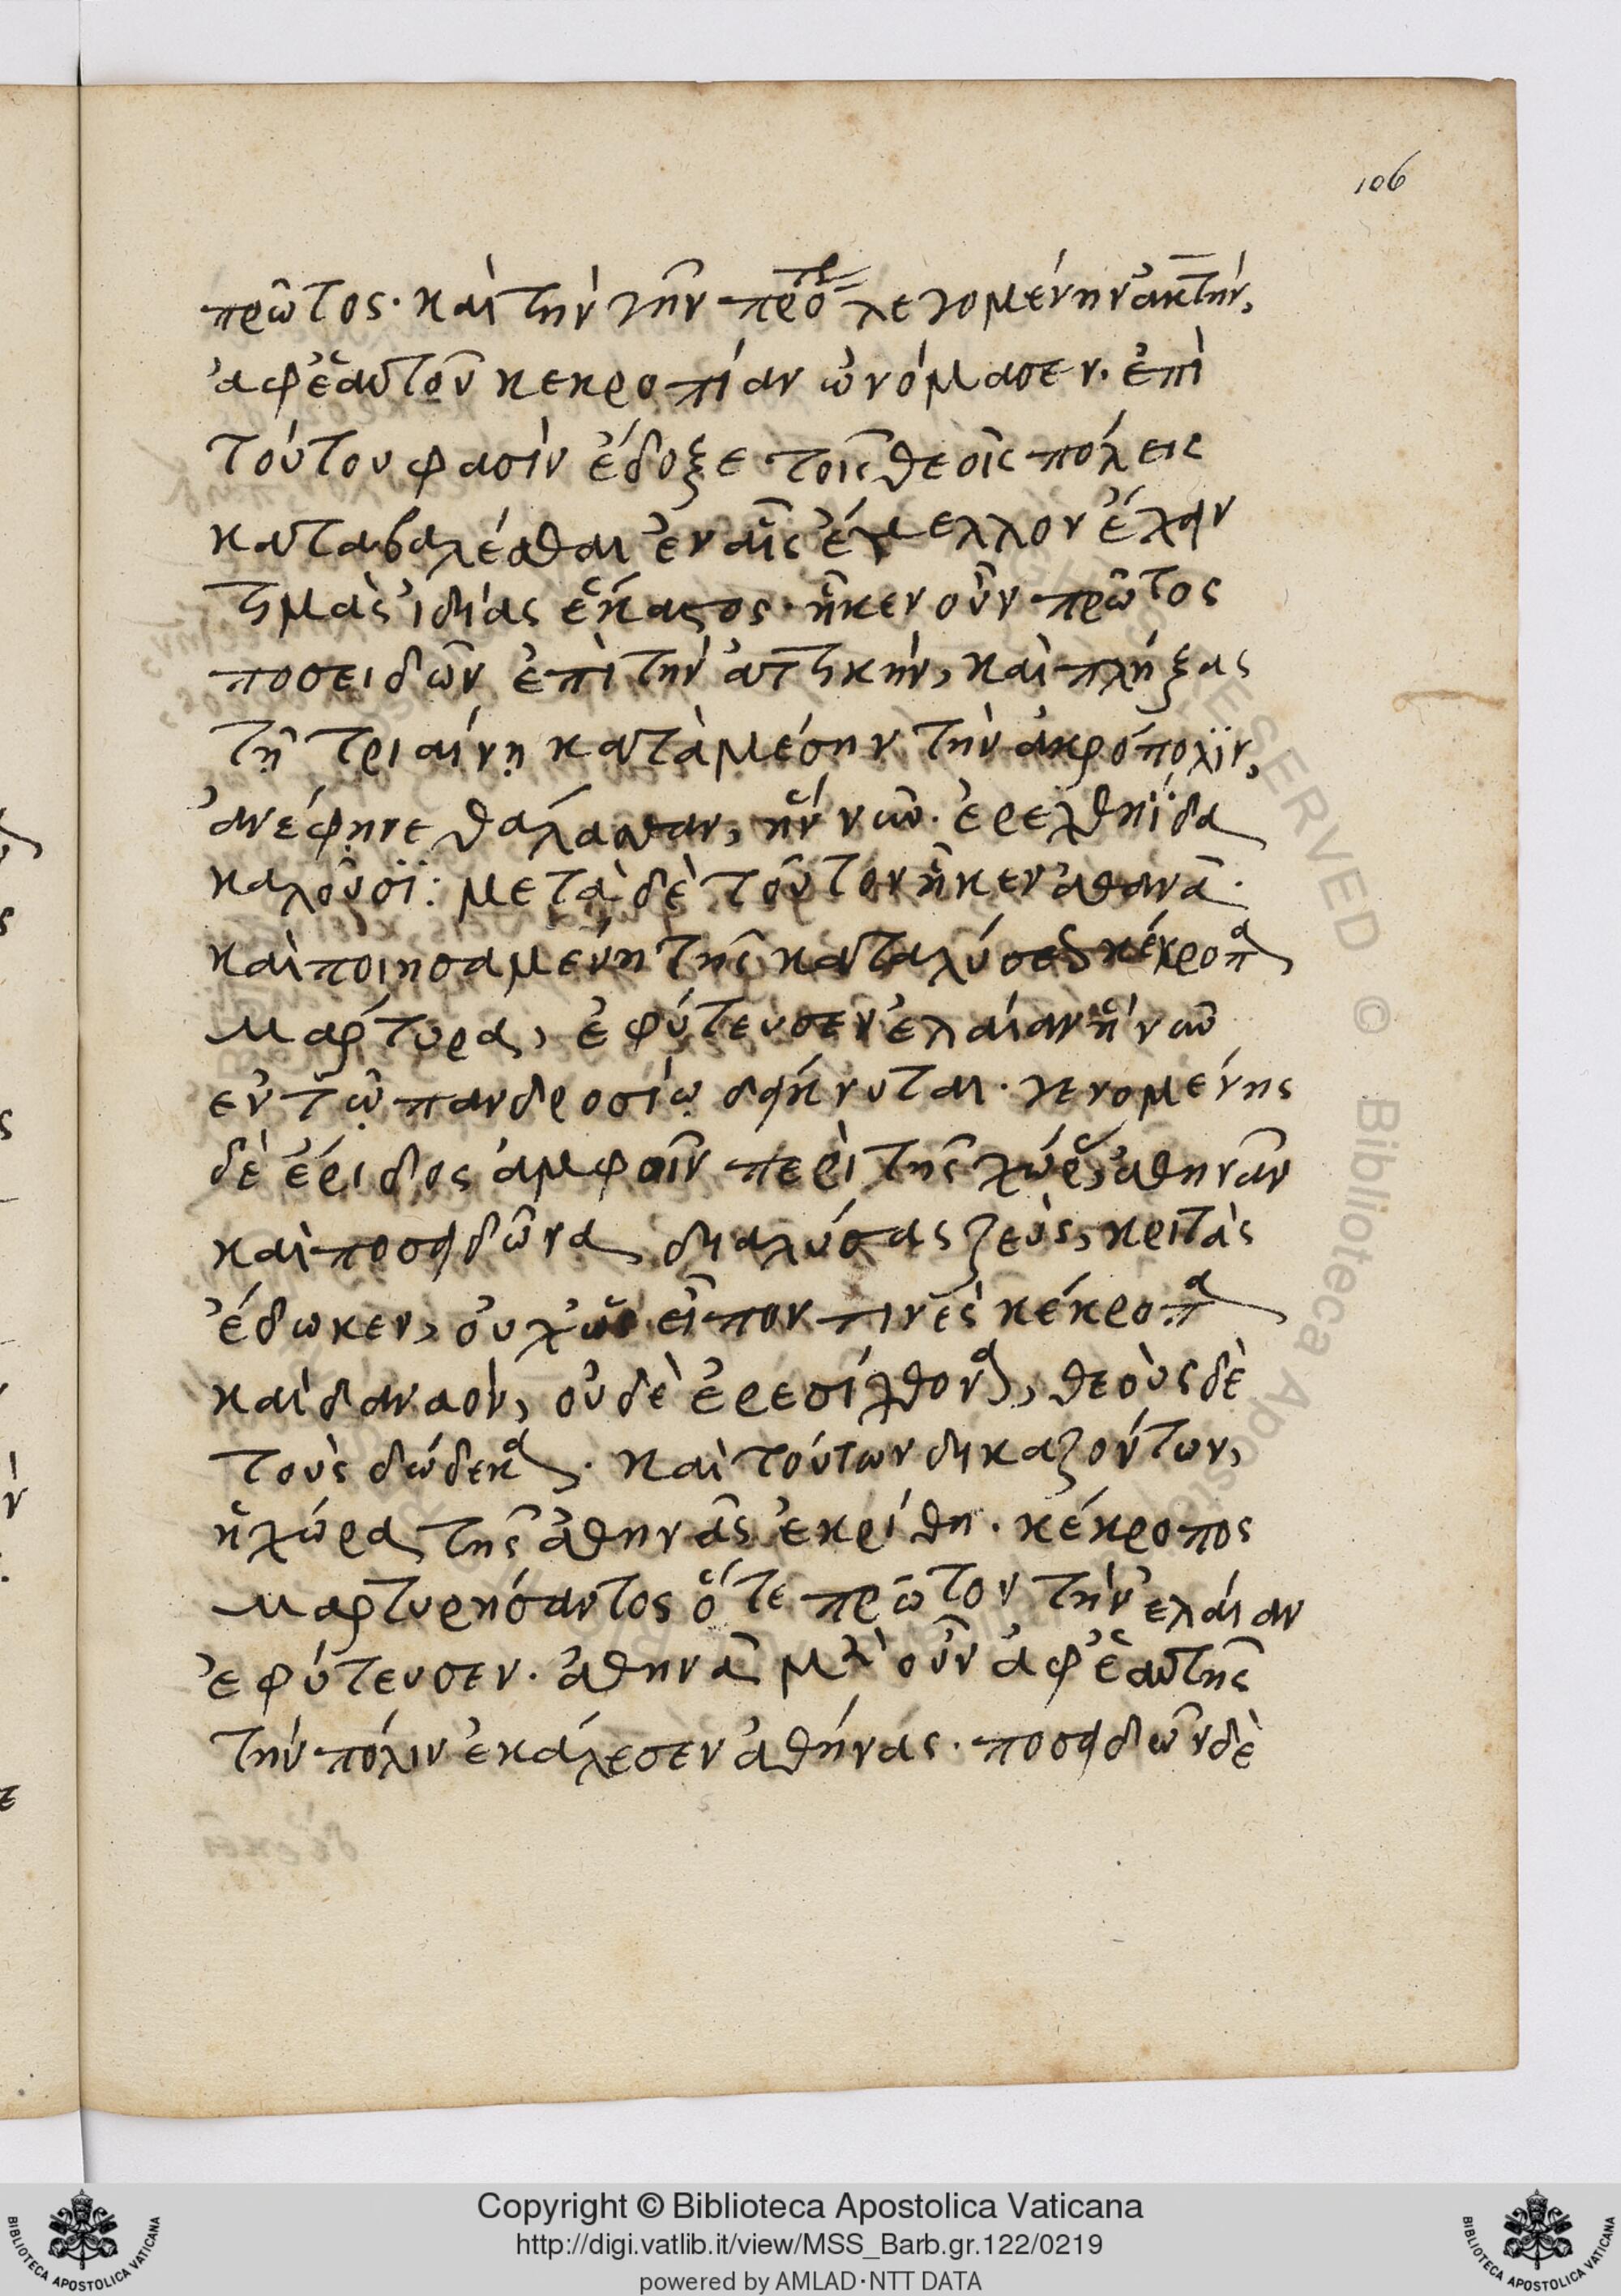 106
πρῶτος· καὶ τὴν γῆν πρότερον λεγομένην ἀκτὴν,
ἀφ' ἑαυτοῦ κεκροπίαν ὠνόμασεν· ἐπὶ
τούτου φασὶν ἔδοξε τοῖς θεοῖς πόλεις
καταβαλέσθαι ἐν αἷς ἔμελλον ἔχειν
τιμὰς ἰδίας ἕκαστος· ἧκεν οὖν πρῶτος
ποσειδῶν ἐπὶ τὴν ἀττικὴν, καὶ πλήξας
τῇ τριαίνῃ κατὰ μέσην τὴν ἀκρόπολϊν,
ἀνέφηνε θάλασσαν, ἣν νῦν ἐρεχθηΐδα
καλοῦσϊ: μετὰ δὲ τοῦτον ἧκεν ἀθηνᾶ·
καὶ ποιησαμένη τῆς καταλύσεως κέκροπα
μάρτυρα, ἐφύτευσεν ἐλαίαν ἣ νῦν
ἐν τῷ πανδροσίῳ δείκνυται· γενομένης
δὲ ἔριδος ἀμφοῖν περὶ τῆς χώρας, ἀθηνᾶν
καὶ ποσειδῶνα διαλύσας ζεὺς, κριτὰς
ἔδωκεν, οὐχ ὡς εἶπον τινὲς κέκροπα
καὶ δαναὸν, οὐδὲ ἐρεσίχθονα, θεοὺς δὲ
τοὺς δώδεκα· καὶ τούτων δικαζόντων,
ἡ χώρα τῆς ἀθηνᾶς ἐκρίθη· κέκροπος
μαρτυρήσαντος ὅτε πρῶτον τὴν ἐλαίαν
ἐφύτευσεν· ἀθηνᾶ μὲν οὖν ἀφ' ἑαυτῆς
τὴν πόλιν ἐκάλεσεν ἀθήνας· ποσειδῶν δὲ
RESERVED © Biblioteca Apostolica
Copyright © Biblioteca Apostolica Vaticana
http://digi.vatlib.it/view/MSS_Barb.gr.122/0219
powered by AMLAD·NTT DATA
BIBLIOTECA APOSTOLICA VATICANA
BIBLIOTECA APOSTOLICA VATICANA